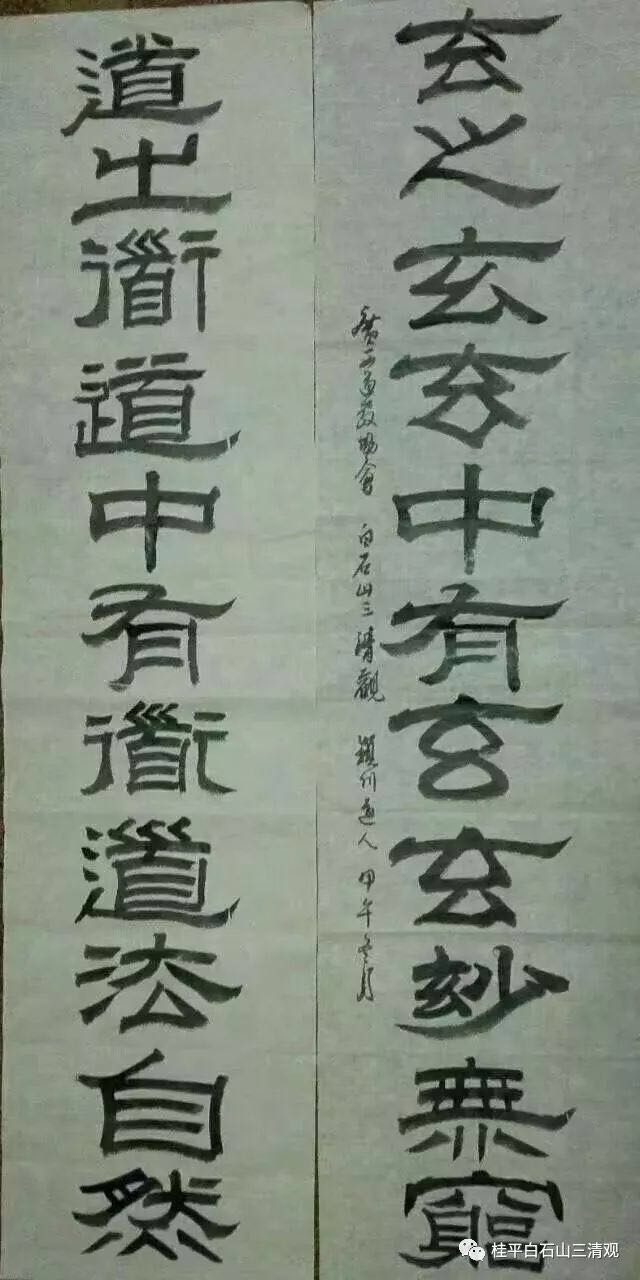 玄之玄玄中有玄玄玅無窮
廣西道教協會 白石山三清觀 潁川道人 甲午冬月
道之衟道中有衟道法自然
桂平白石山三清观